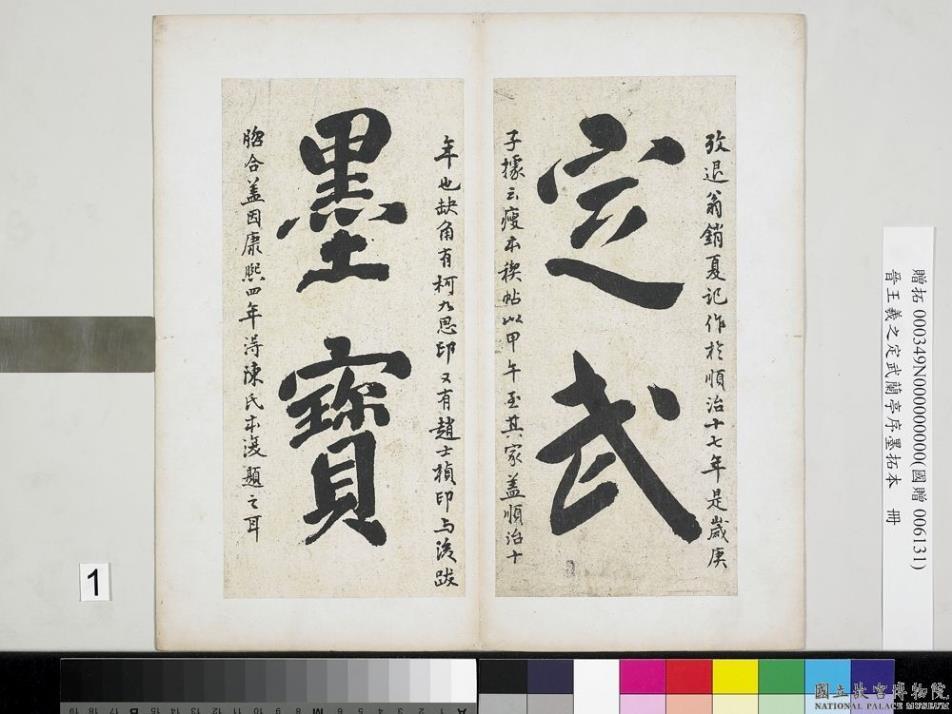 定武
攷退翁銷夏記作於順治十七年是歲庚
子據云瘦本稧帖以甲午至其家盖順治十
墨寶
年也缺角有柯九思印又有趙士楨印与後跋
脗合盖因康熙四年淂陳氏本復題之耳
贈拓 000349N000000000(國贈 006131)
晉王羲之定武蘭亭序墨拓本 冊
1
19 18 17 16 15
國立故宮博物院
NATIONAL PALACE MUSEUM